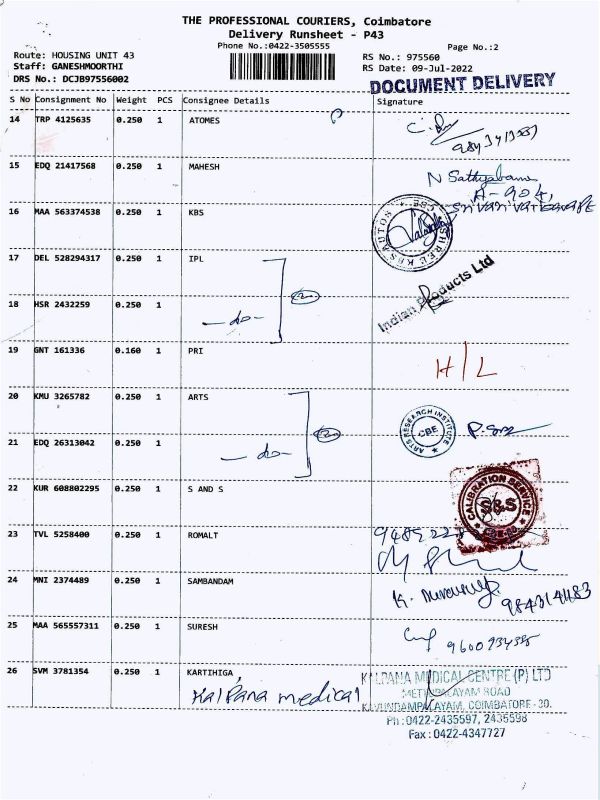 THE PROFESSIONAL COURIERS, Coimbatore
Delivery Runsheet - P43
Phone No.:0422-3505555
Page No.:2
Route: HOUSING UNIT 43
RS No.: 975560
Staff: GANESHMOORTHI
RS Date: 09-Jul-2022
DRS No.: DCJB97556002
DOCUMENT DELIVERY
S No Consignment No Weight PCS Consignee Details Signature
14 TRP 4125635 0.250 1 ATOMES
15 EDQ 21417568 0.250 1 MAHESH
N Sathyabama
A-904,
16 MAA 563374538 0.250 1 KBS
SHREE KBS AUTOS
17 DEL 528294317 0.250 1 IPL
Indian Products Ltd
18 HSR 2432259 0.250 1
-do-
2
19 GNT 161336 0.160 1 PRI
H/L
20 KMU 3265782 0.250 1 ARTS
ARTS RESEARCH INSTITUTE
CBE
21 EDQ 26313042 0.250 1
-do-
2
22 KUR 608802295 0.250 1 S AND S
CALIBRATION SERVICE
S&S
23 TVL 5258400 0.250 1 ROMALT
24 MNI 2374489 0.250 1 SAMBANDAM
25 MAA 565557311 0.250 1 SURESH
26 SVM 3781354 0.250 1 KARTIHIGA
Kalpana medical
KALPANA MEDICAL CENTRE (P) LTD
METTUPALAYAM ROAD
KAVUNDAMPALAYAM, COIMBATORE - 30.
Ph : 0422-2435597, 2435598
Fax : 0422-4347727